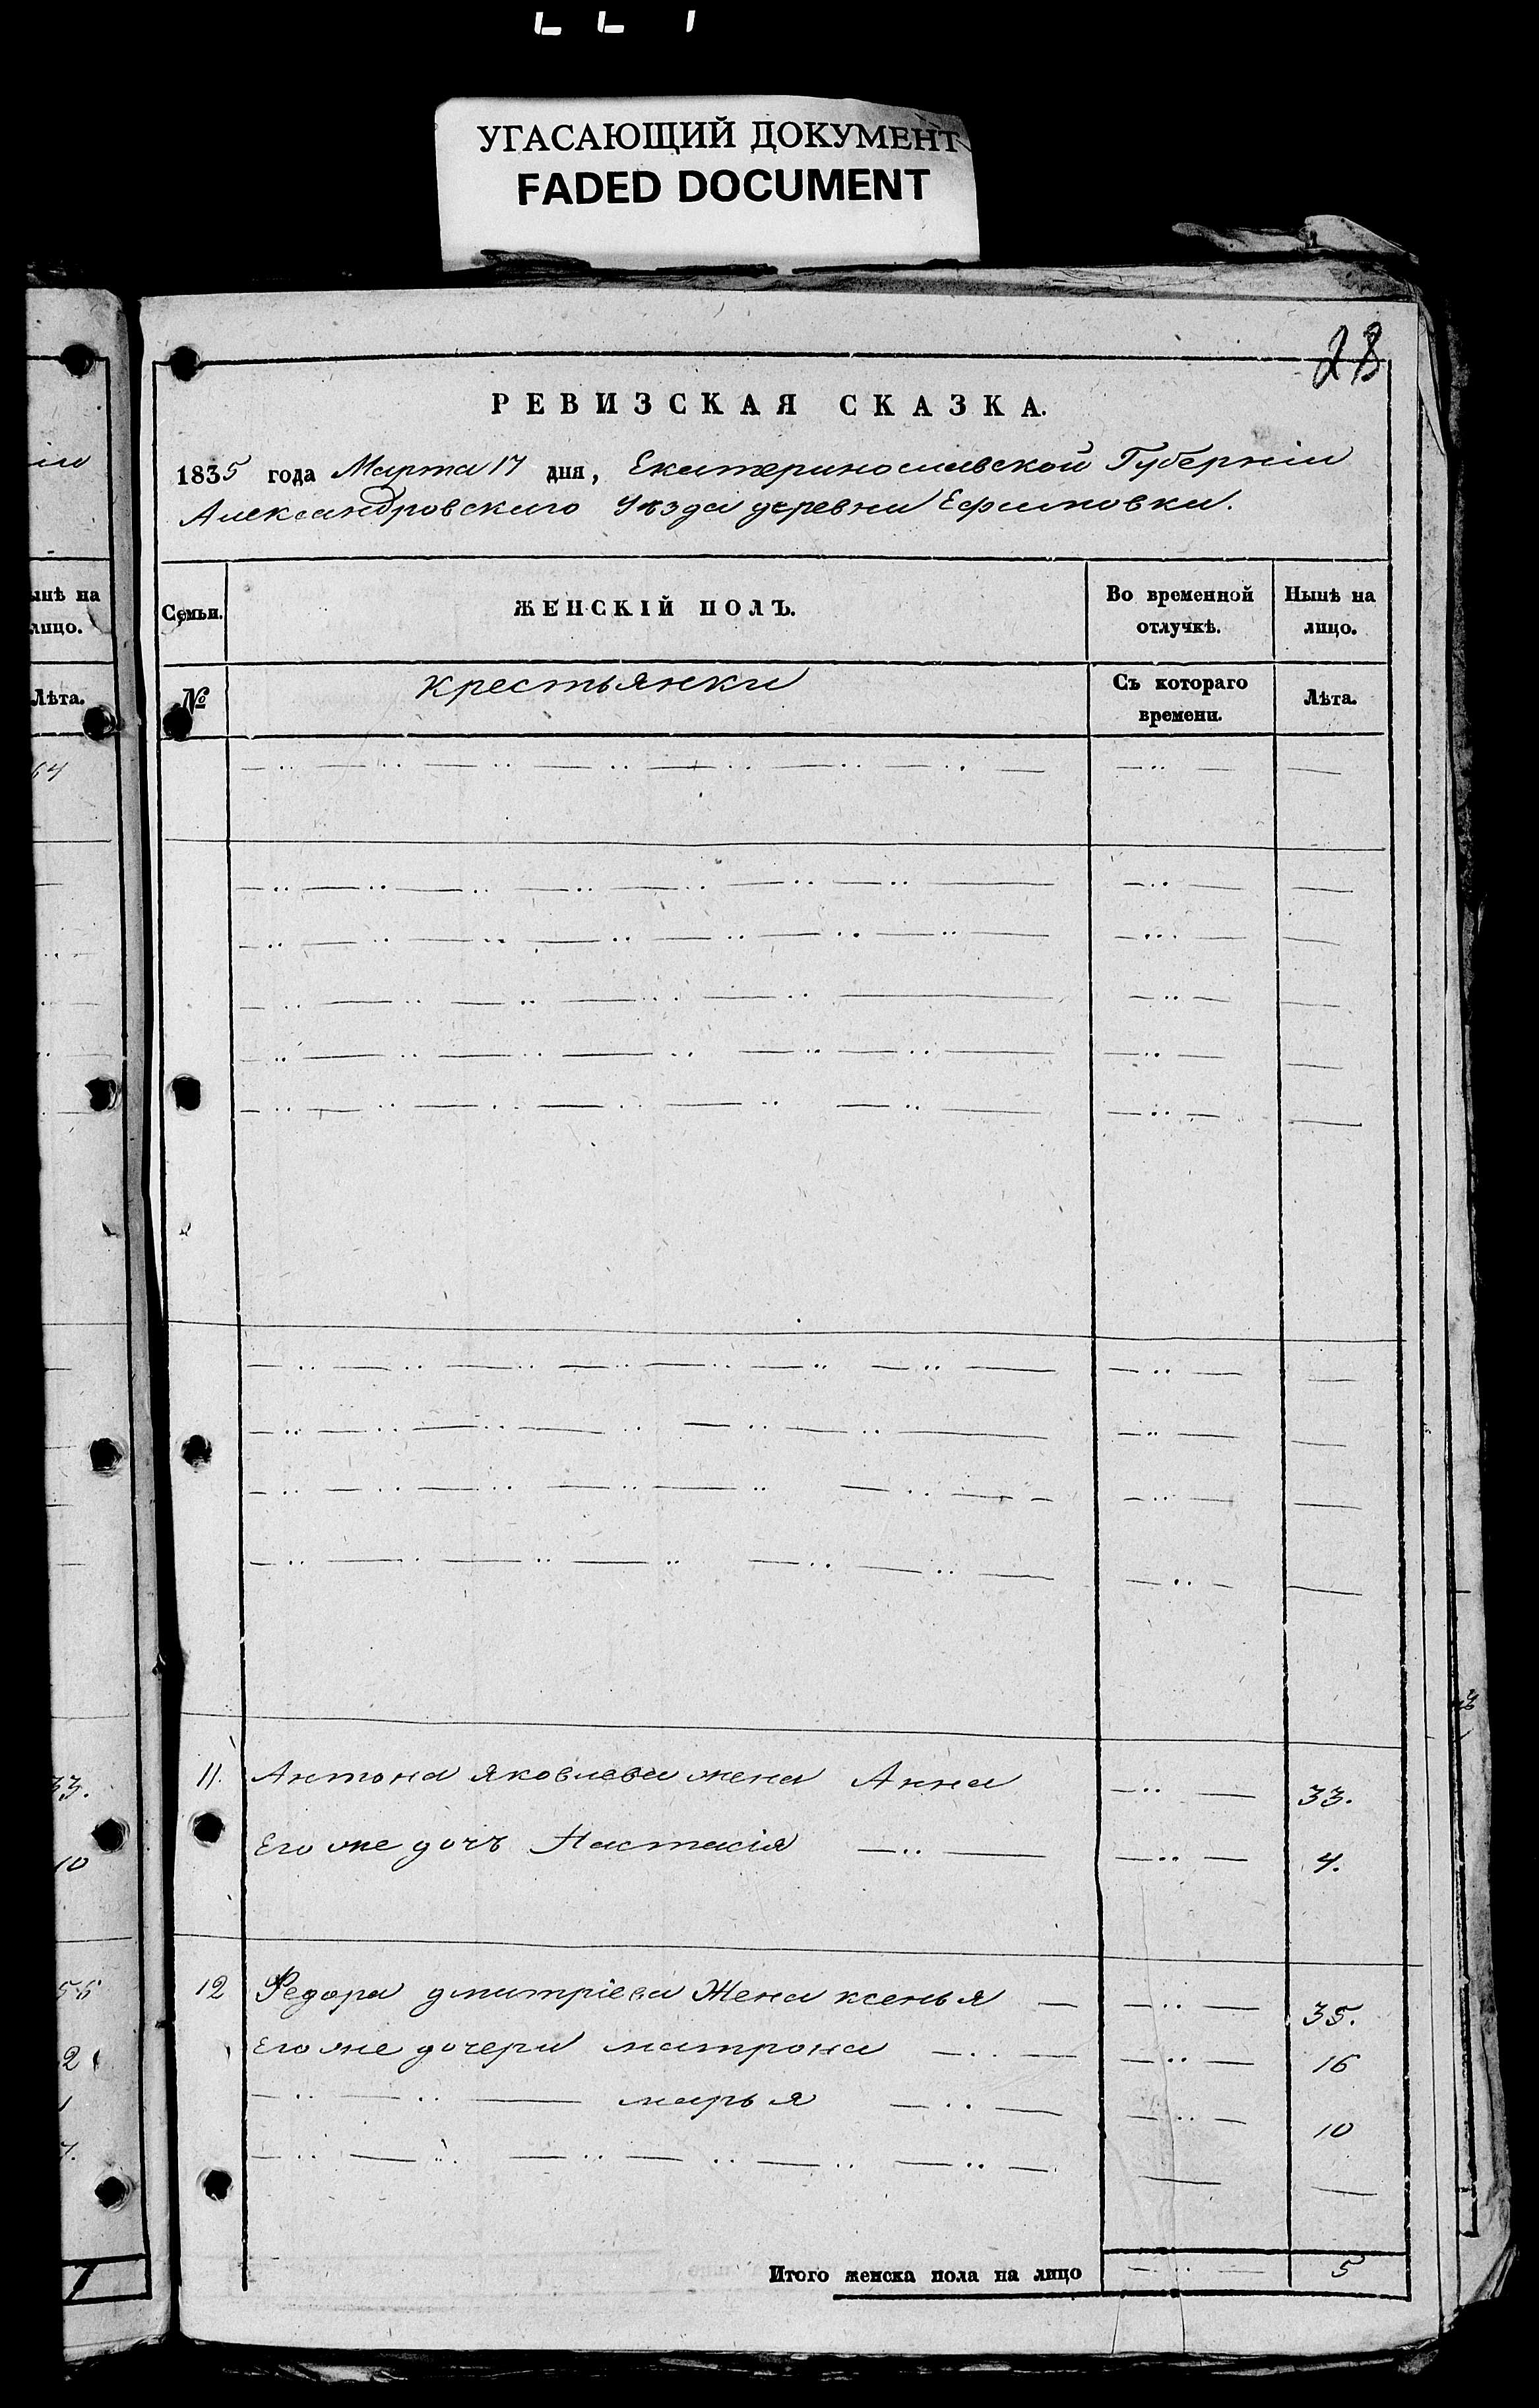 УГАСАЮЩИЙ ДОКУМЕНТ
FADED DOCUMENT
РЕВИЗСКАЯ СКАЗКА.
1835 года Марта 17 дня, Екатеринославской Губерніи
Александровскаго Уѣзда деревни Ефимовки.
Семьи. ЖЕНСКІЙ ПОЛЪ. Во временной отлучкѣ. Нынѣ на лицо.
№ крестьянки Съ котораго времени. Лѣта.
11. Антона яковлева жена Анна 33.
Его же дочь Настасія 4.
12 Федора дмитріева Жена ксенья 35.
Его же дочери матрона 16
марья 10
Итого женска пола на лицо 5